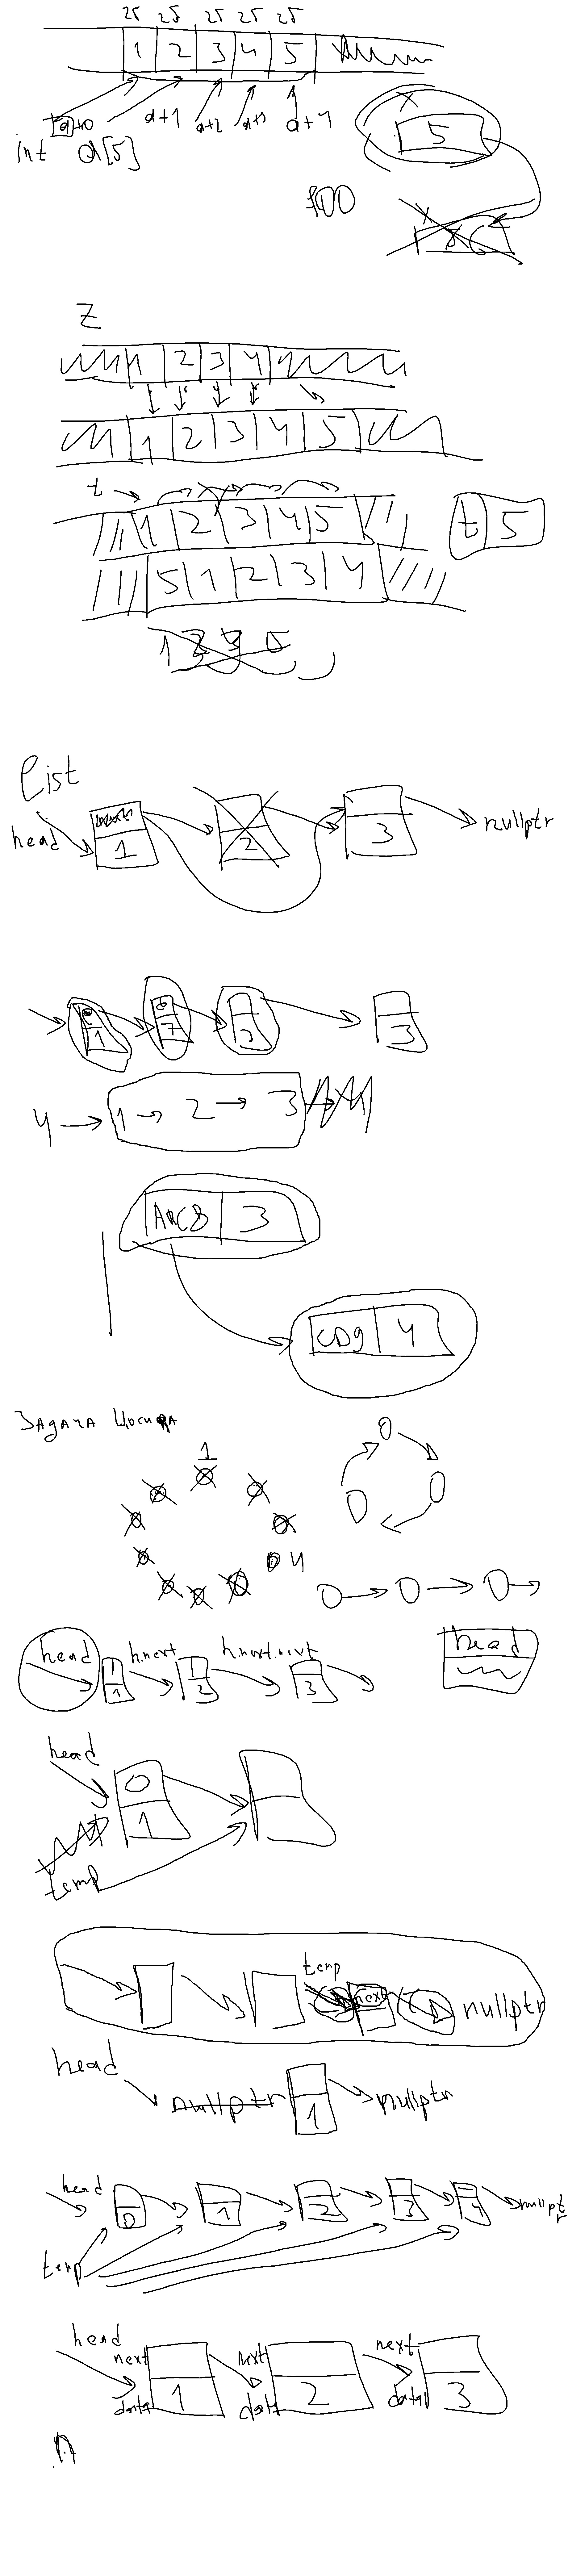 1 2 3 4 5
a+0 a+1 a+2 a+3 a+4
int a[5]
5
100
Z
1 2 3 4
1 2 3 4 5
t
1 2 3 4 5
t 5
5 1 2 3 4
List
head 1 2 3 nullptr
1 3
4 → 1 → 2 → 3
3
CD9 4
1
4
head h.next h.next.next
1 2 3
head
head
0
1
temp
temp
next nullptr
head
nullptr 1 nullptr
head 0 1 2 3 4 nullptr
temp
head
next next next
data 1 data 2 data 3